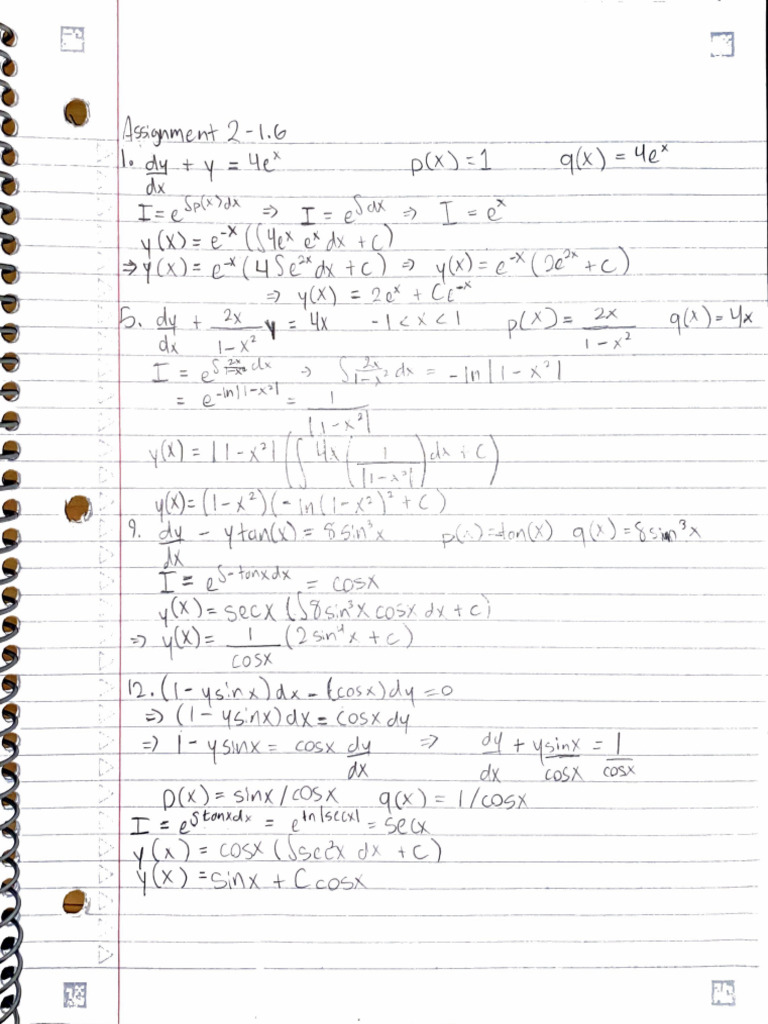 Assignment 2-1.6
1. dy/dx + y = 4e^x p(x) = 1 q(x) = 4e^x
I = e^∫p(x)dx ⇒ I = e^∫dx ⇒ I = e^x
y(x) = e^-x (∫4e^x e^x dx + C)
⇒ y(x) = e^-x (4∫e^2x dx + C) ⇒ y(x) = e^-x (2e^2x + C)
⇒ y(x) = 2e^x + Ce^-x
5. dy/dx + 2x/(1-x²) y = 4x -1 < x < 1 p(x) = 2x/(1-x²) q(x) = 4x
I = e^∫2x/(1-x²)dx → ∫2x/(1-x²) dx = -ln|1-x²|
= e^-ln|1-x²| = 1/|1-x²|
y(x) = |1-x²| (∫4x (1/|1-x²|) dx + C)
y(x) = (1-x²)(-ln(1-x²)² + C)
9. dy/dx - y tan(x) = 8sin³x p(x) = tan(x) q(x) = 8sin³x
I = e^∫-tanxdx = cosx
y(x) = secx (∫8sin³x cosx dx + C)
⇒ y(x) = 1/cosx (2sin⁴x + C)
12. (1-ysinx)dx - (cosx)dy = 0
⇒ (1-ysinx)dx = cosxdy
⇒ 1-ysinx = cosx dy/dx ⇒ dy/dx + ysinx/cosx = 1/cosx
p(x) = sinx/cosx q(x) = 1/cosx
I = e^∫tanxdx = e^ln|secx| = secx
y(x) = cosx (∫sec²x dx + C)
y(x) = sinx + C cosx